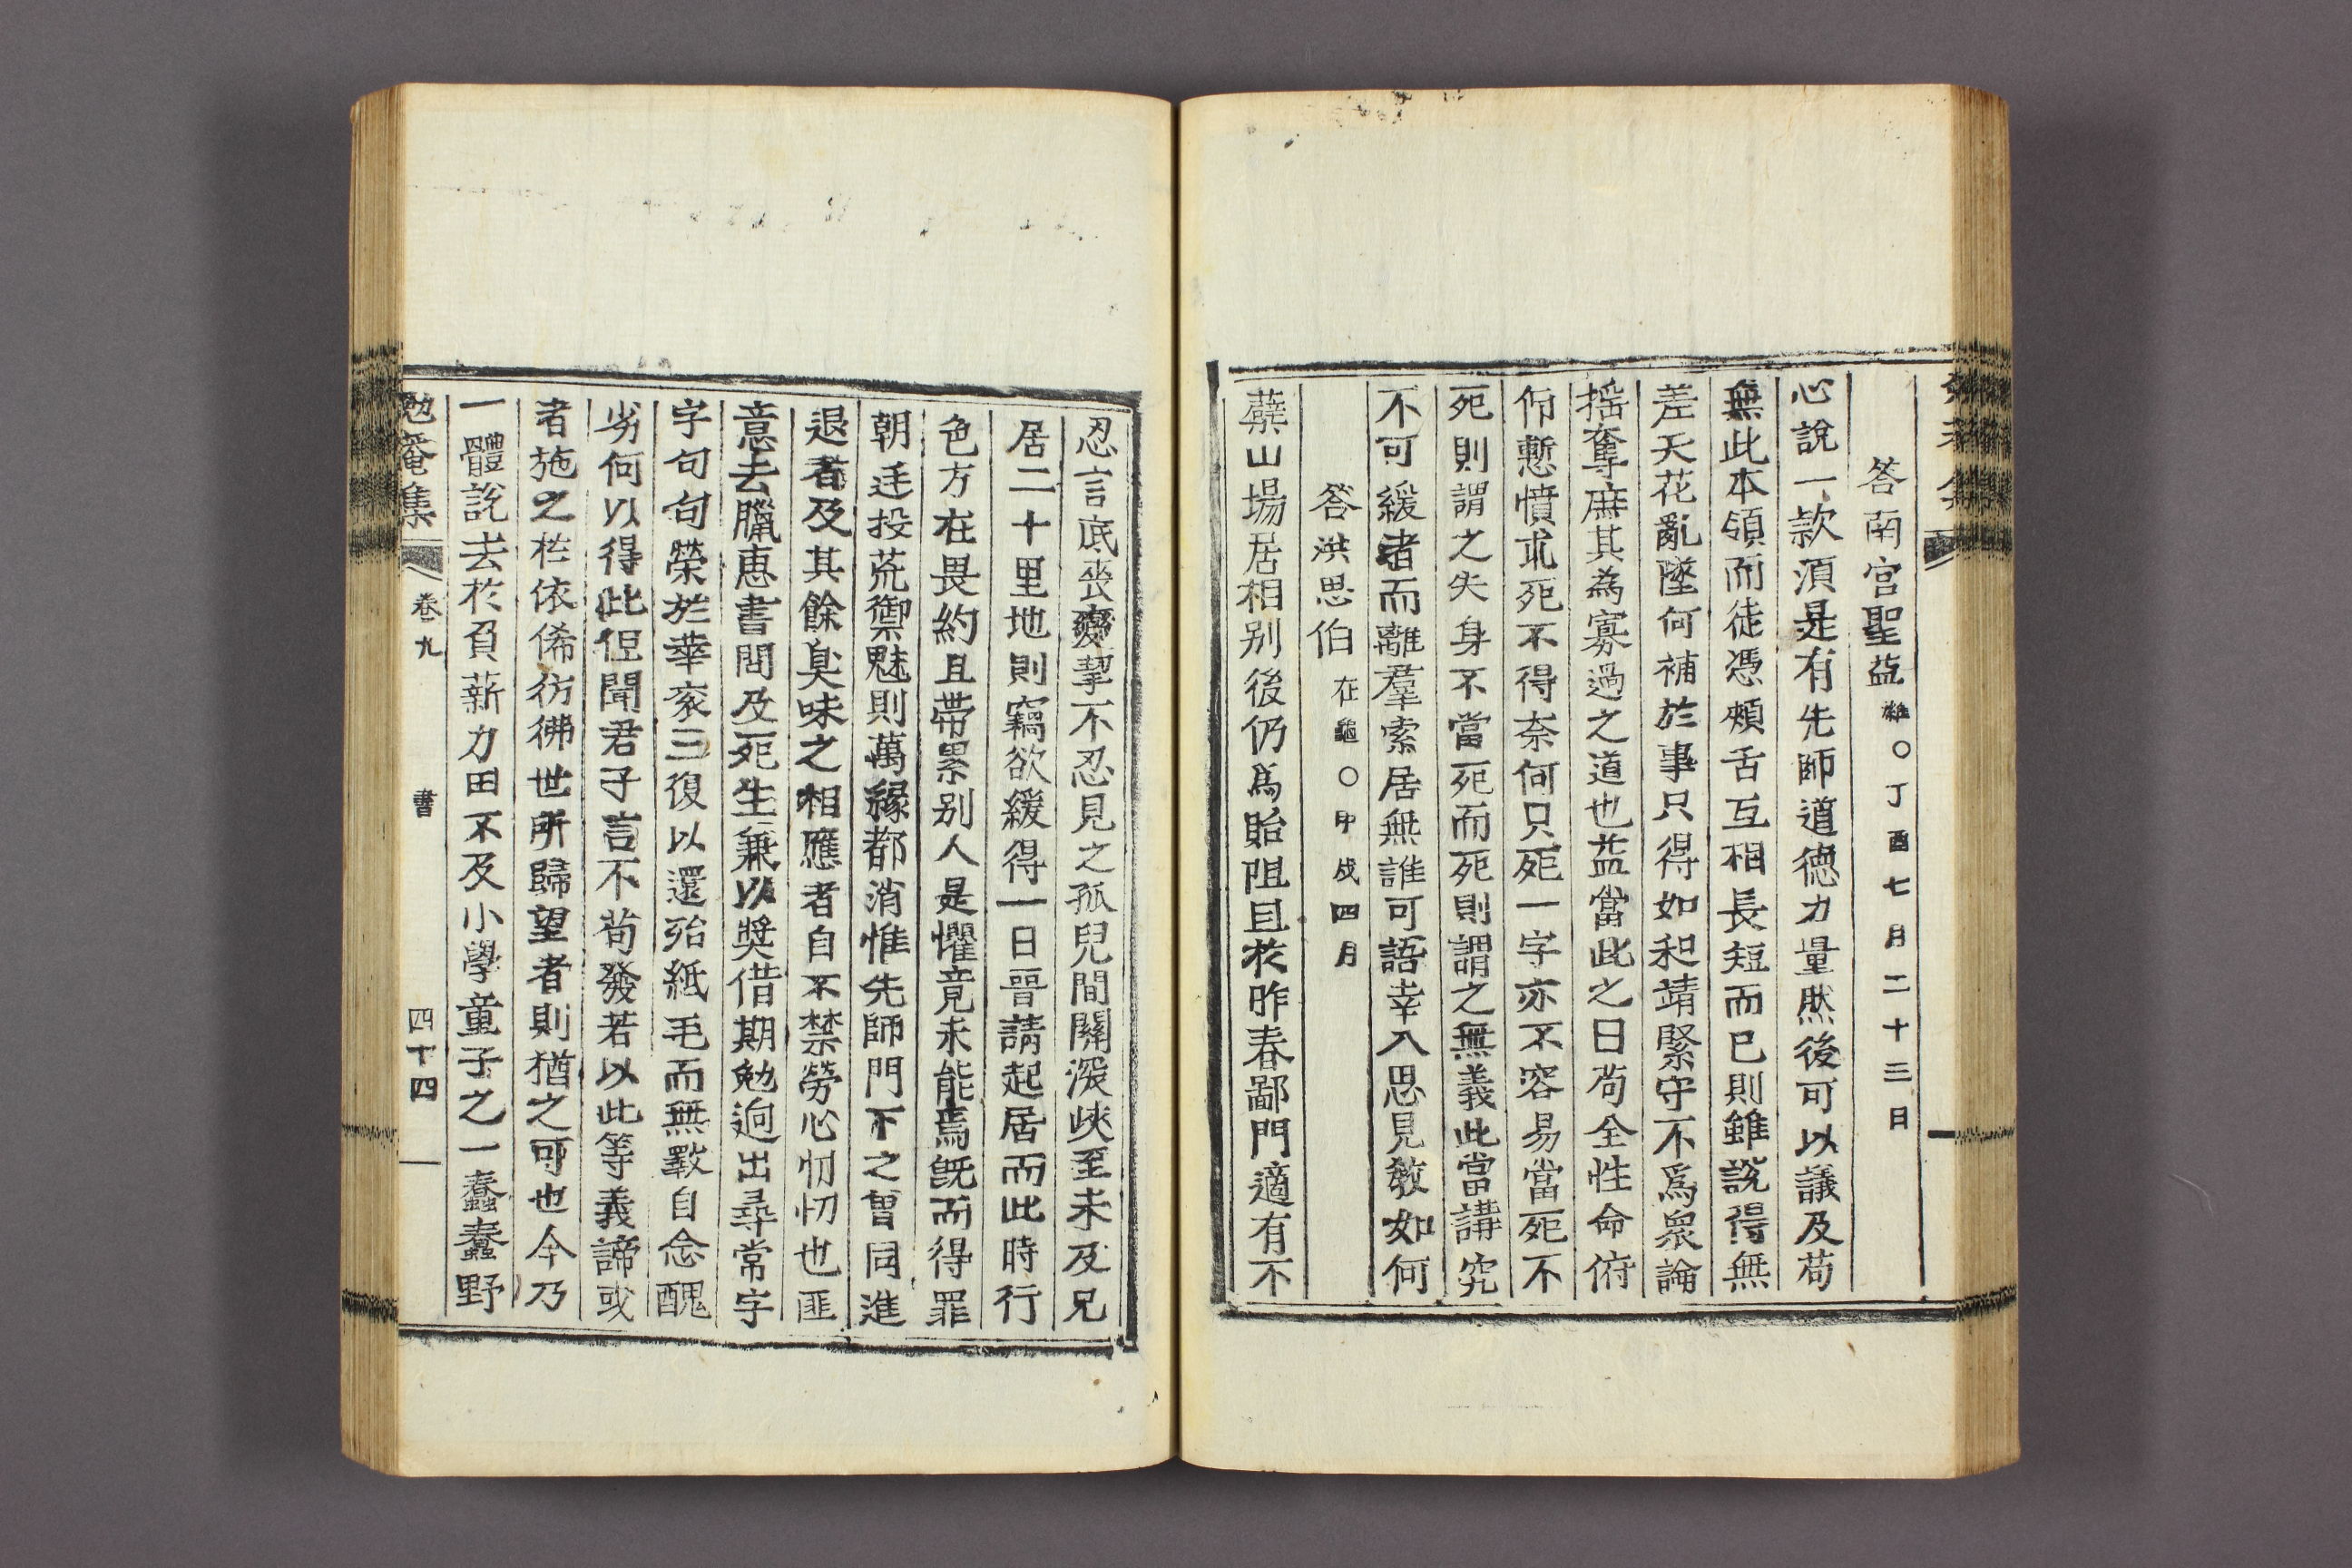 答南宮聖益 㶅○丁酉七月二十三日
心說一款須是有先師道德力量然後可以議及苟
無此本領而徒憑頰舌互相長短而已則雖說得無
差天花亂墜何補於事只得如和靖緊守不爲衆論
搖奪庶其為寡過之道也益當此之日苟全性命俯
仰慙憤求死不得奈何只死一字亦不容易當死不
死則謂之失身不當死而死則謂之無義此當講究
不可緩者而離羣索居無誰可語幸入思見敎如何
答洪思伯 在龜○甲戌四月
蘗山場居相別後仍爲貽阻且於昨春鄙門適有不
忍言底喪變挈不忍見之孤兒間關深峽至未及兄
居二十里地則竊欲緩得一日晉請起居而此時行
色方在畏約且帶累別人是懼竟未能焉旣而得罪
朝廷投荒禦魅則萬緣都消惟先師門下之曾同進
退者及其餘臭味之相應者自不禁勞心忉忉也匪
意去臘惠書問及死生兼以奬借期勉逈出尋常字
字句句榮於華衮三復以還殆紙毛而無斁自念醜
劣何以得此但聞君子言不苟發若以此等義諦或
者施之於依俙彷彿世所歸望者則猶之可也今乃
一體說去於負薪力田不及小學童子之一蠢蠢野
勉菴集 卷九 書 四十四